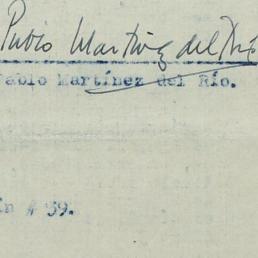 Pablo Martínez del Río
Pablo Martínez del Río.
in # 59.